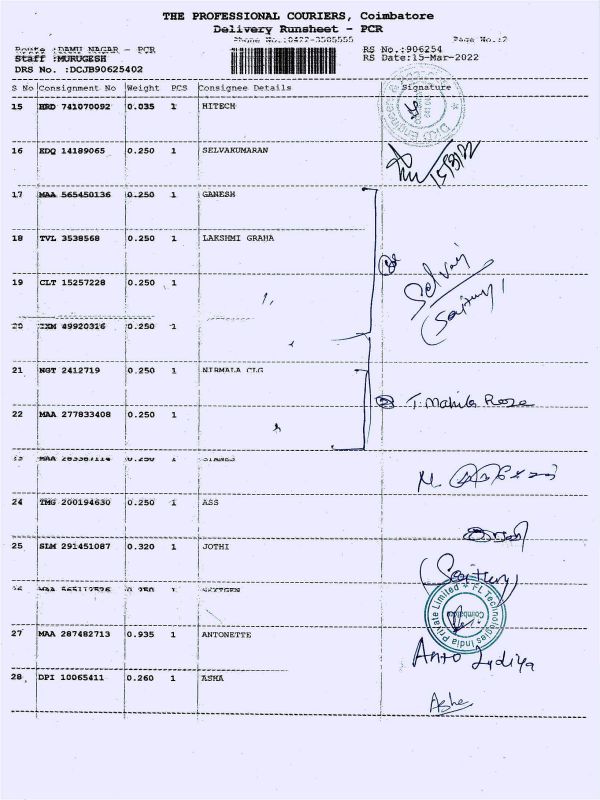 THE PROFESSIONAL COURIERS, Coimbatore
Delivery Runsheet - PCR
Phone No.:0422-3505555 Page No.:2
Route :DAMU NAGAR - PCR RS No.:906254
Staff :MURUGESH RS Date:15-Mar-2022
DRS No. :DCJB90625402
S No Consignment No Weight PCS Consignee Details Signature
15 HRD 741070092 0.035 1 HITECH
16 KDQ 14189065 0.250 1 SELVAKUMARAN
15/3/22
17 MAA 565450136 0.250 1 GANESH
18 TVL 3538568 0.250 1 LAKSHMI GRAHA
Selvaj
19 CLT 15257228 0.250 1
20 IXM 49920316 0.250 1
21 NGT 2412719 0.250 1 NIRMALA CLG
② T. Mahila Rose
22 MAA 277833408 0.250 1
23 MAA 283387114 0.250 1
24 TMG 200194630 0.250 1 ASS
25 SLM 291451087 0.320 1 JOTHI
26 MAA 565117526 0.250 1 NEXTGEN
FL Technologies India Private Limited
Coimbatore
27 MAA 287482713 0.935 1 ANTONETTE
Anto Lidiya
28 DPI 10065411 0.260 1 ASHA
Asha